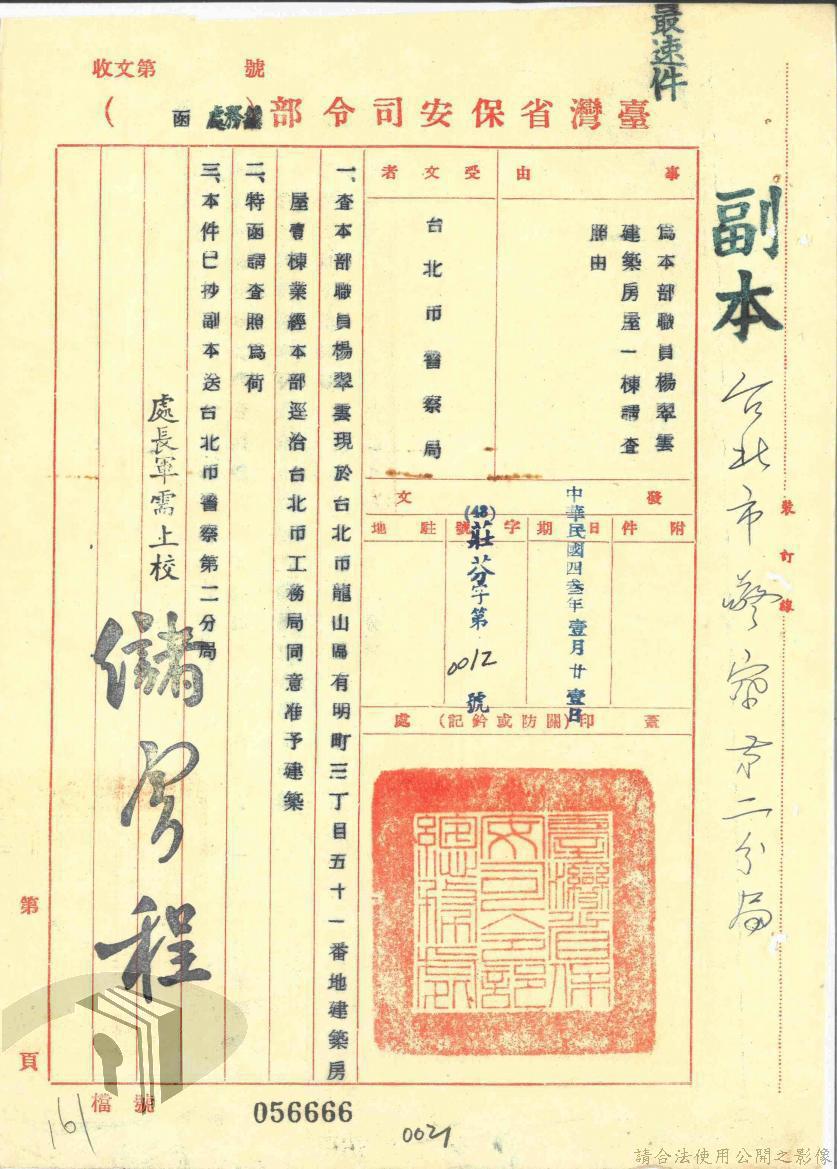 最速件
副本
台北市警察局第二分局
裝訂線
收文第 號
臺灣省保安司令部(總務處)函
事由
為本部職員楊翠雲
建築房屋一棟請查
照由
受文者
台北市警察局
發文
附件
日期
中華民國四叁年壹月廿壹日
字號
(43)莊芬字第0012號
駐地
蓋印(關防或鈐記)處
臺灣省保
安司令部
總務處
一、查本部職員楊翠雲現於台北市龍山區有明町三丁目五十一番地建築房
屋壹棟業經本部逕洽台北市工務局同意准予建築
二、特函請查照為荷
三、本件已抄副本送台北市警察第二分局
處長軍需上校
程
第 頁
檔號
161
056666
0021
請合法使用公開之影像